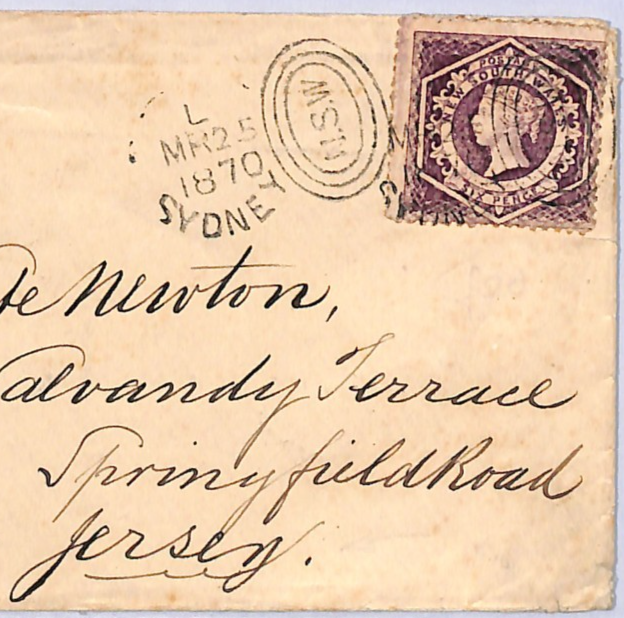 L
MR 25
1870
SYDNEY
N.S.W
POSTAGE
NEW SOUTH WALES
SIX PENCE
Newton,
Terrace
Springfield Road
Jersey.